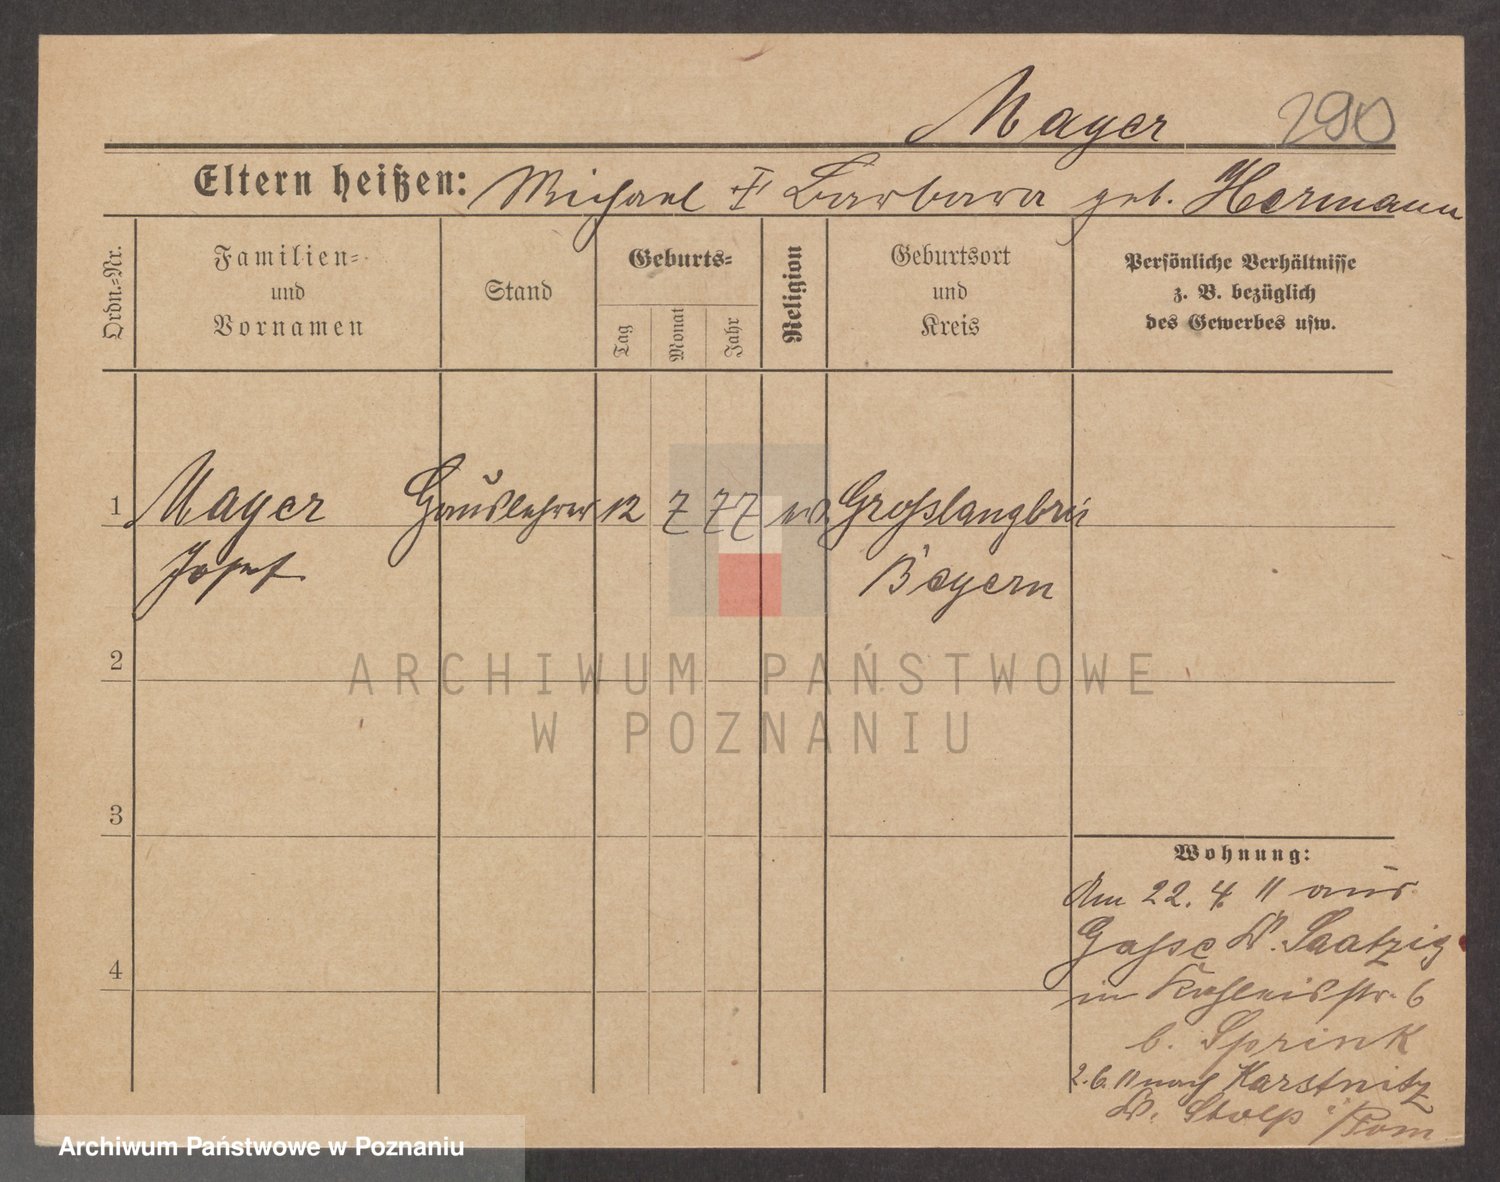 Mayer 290
Eltern heißen: Michael u Barbara geb. Hermann
Ordn.-Nr.
Familien-
und
Vornamen
Stand
Geburts-
Tag
Monat
Jahr
Religion
Geburtsort
und
Kreis
Persönliche Verhältnisse
z. B. bezüglich
des Gewerbes usw.
1 Mayer Hauslehrer 12 7 77 Großlangbri
Josef Beyern
2
3
4
Wohnung:
Am 22. 4. 11 aus
K. Saatzig
in str. 6
b. Sprink
2. 6. 11 nach Karstnitz
K. Stolp i/Pom
ARCHIWUM PAŃSTWOWE
W POZNANIU
Archiwum Państwowe w Poznaniu